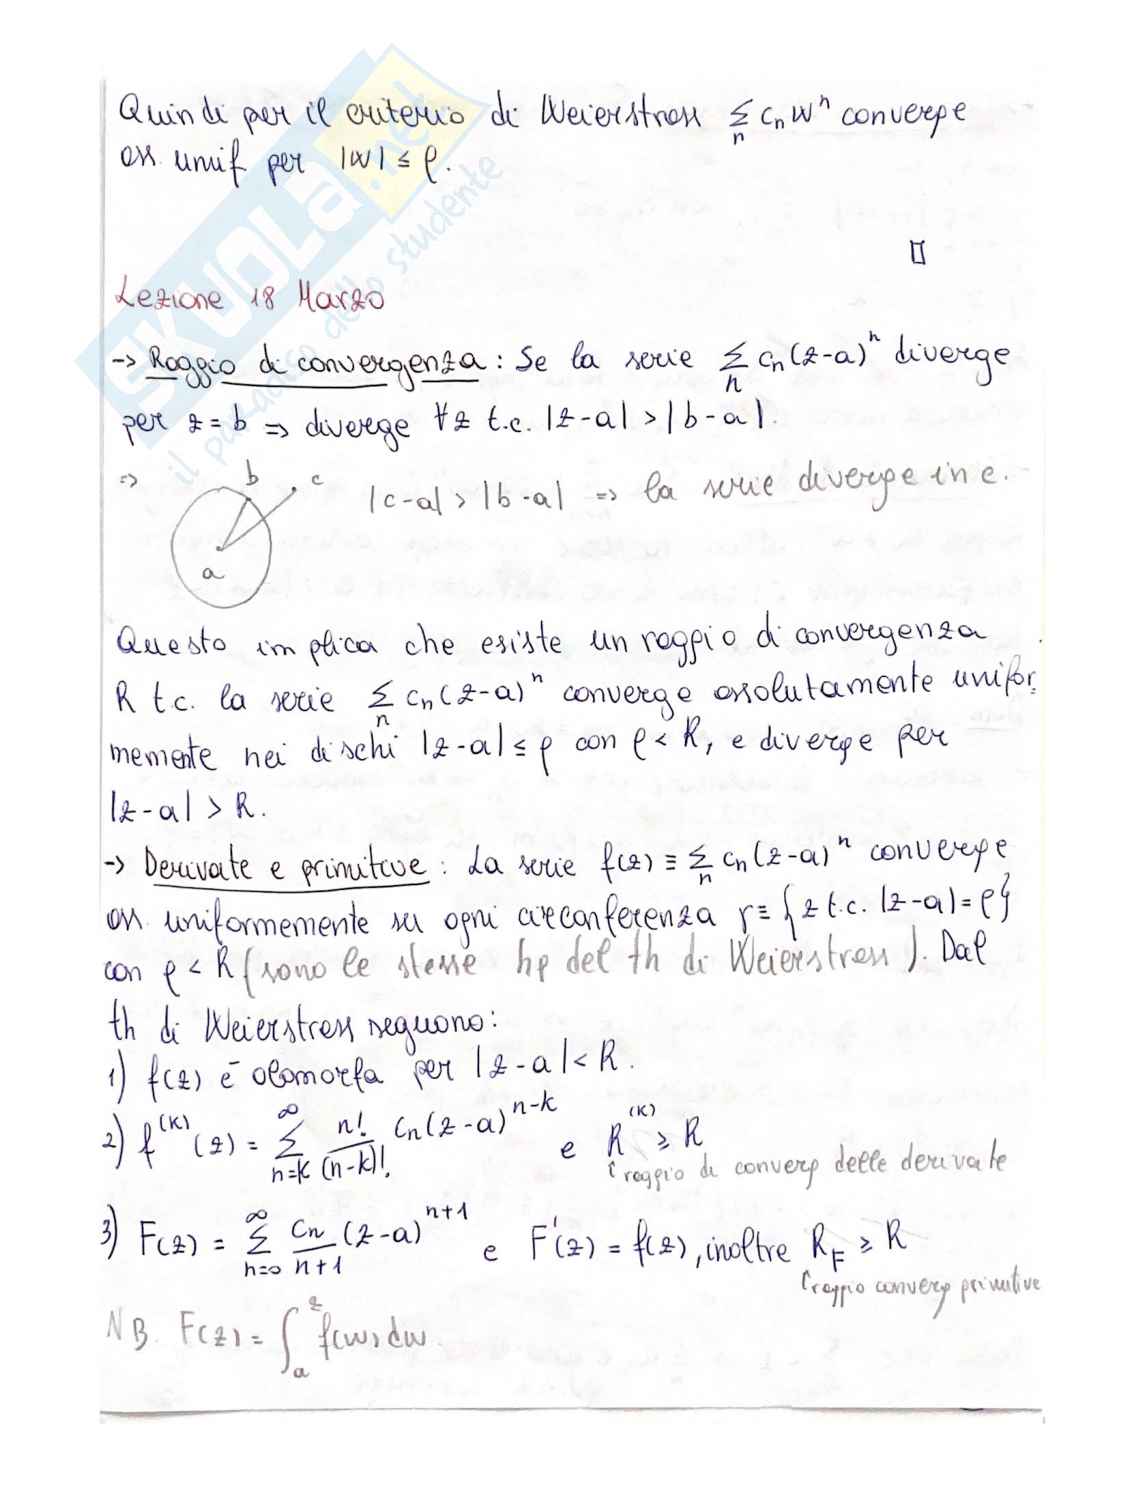 Quindi per il criterio di Weierstrass ∑_n c_n w^n converge
ass. unif per |w| ≤ ρ.
Lezione 18 Marzo
-> Raggio di convergenza : Se la serie ∑_n c_n (z-a)^n diverge
per z = b => diverge ∀z t.c. |z-a| > |b-a|.
=> b c a |c-a| > |b-a| => la serie diverge in c.
Questo implica che esiste un raggio di convergenza
R t.c. la serie ∑_n c_n (z-a)^n converge assolutamente unifor
memente nei dischi |z-a| ≤ ρ con ρ < R, e diverge per
|z-a| > R.
-> Derivate e primitive : La serie f(z) ≡ ∑_n c_n (z-a)^n converge
ass. uniformemente su ogni circonferenza γ ≡ {z t.c. |z-a| = ρ}
con ρ < R (sono le stesse hp del th di Weierstrass). Dal
th di Weierstrass seguono:
1) f(z) è olomorfa per |z-a| < R.
2) f^(K)(z) = ∑_{n=K}^∞ n!/(n-k)! c_n (z-a)^{n-k} e R^(K) ≥ R
raggio di converg delle derivate
3) F(z) = ∑_{n=0}^∞ c_n/(n+1) (z-a)^{n+1} e F'(z) = f(z), inoltre R_F ≥ R
raggio converg primitive
NB. F(z) = ∫_a^z f(w) dw.
SKUOLA.net
il paradiso dello studente